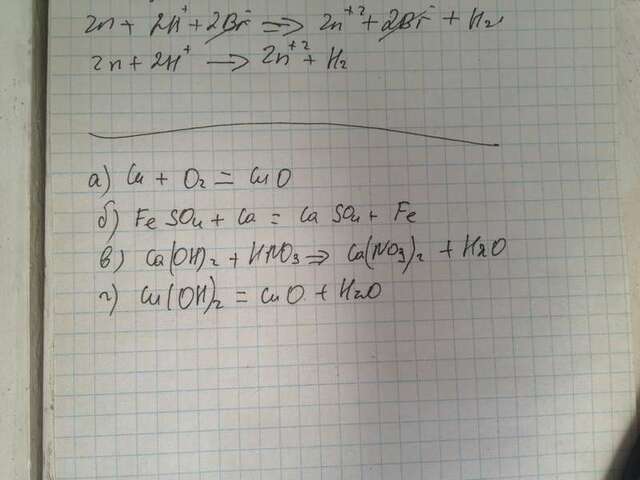 Zn + 2H⁺ + 2Br⁻ => Zn⁺² + 2Br⁻ + H₂
Zn + 2H⁺ → Zn⁺² + H₂
а) Cu + O₂ = CuO
б) FeSO₄ + Ca = CaSO₄ + Fe
в) Ca(OH)₂ + HNO₃ => Ca(NO₃)₂ + H₂O
г) Cu(OH)₂ = CuO + H₂O